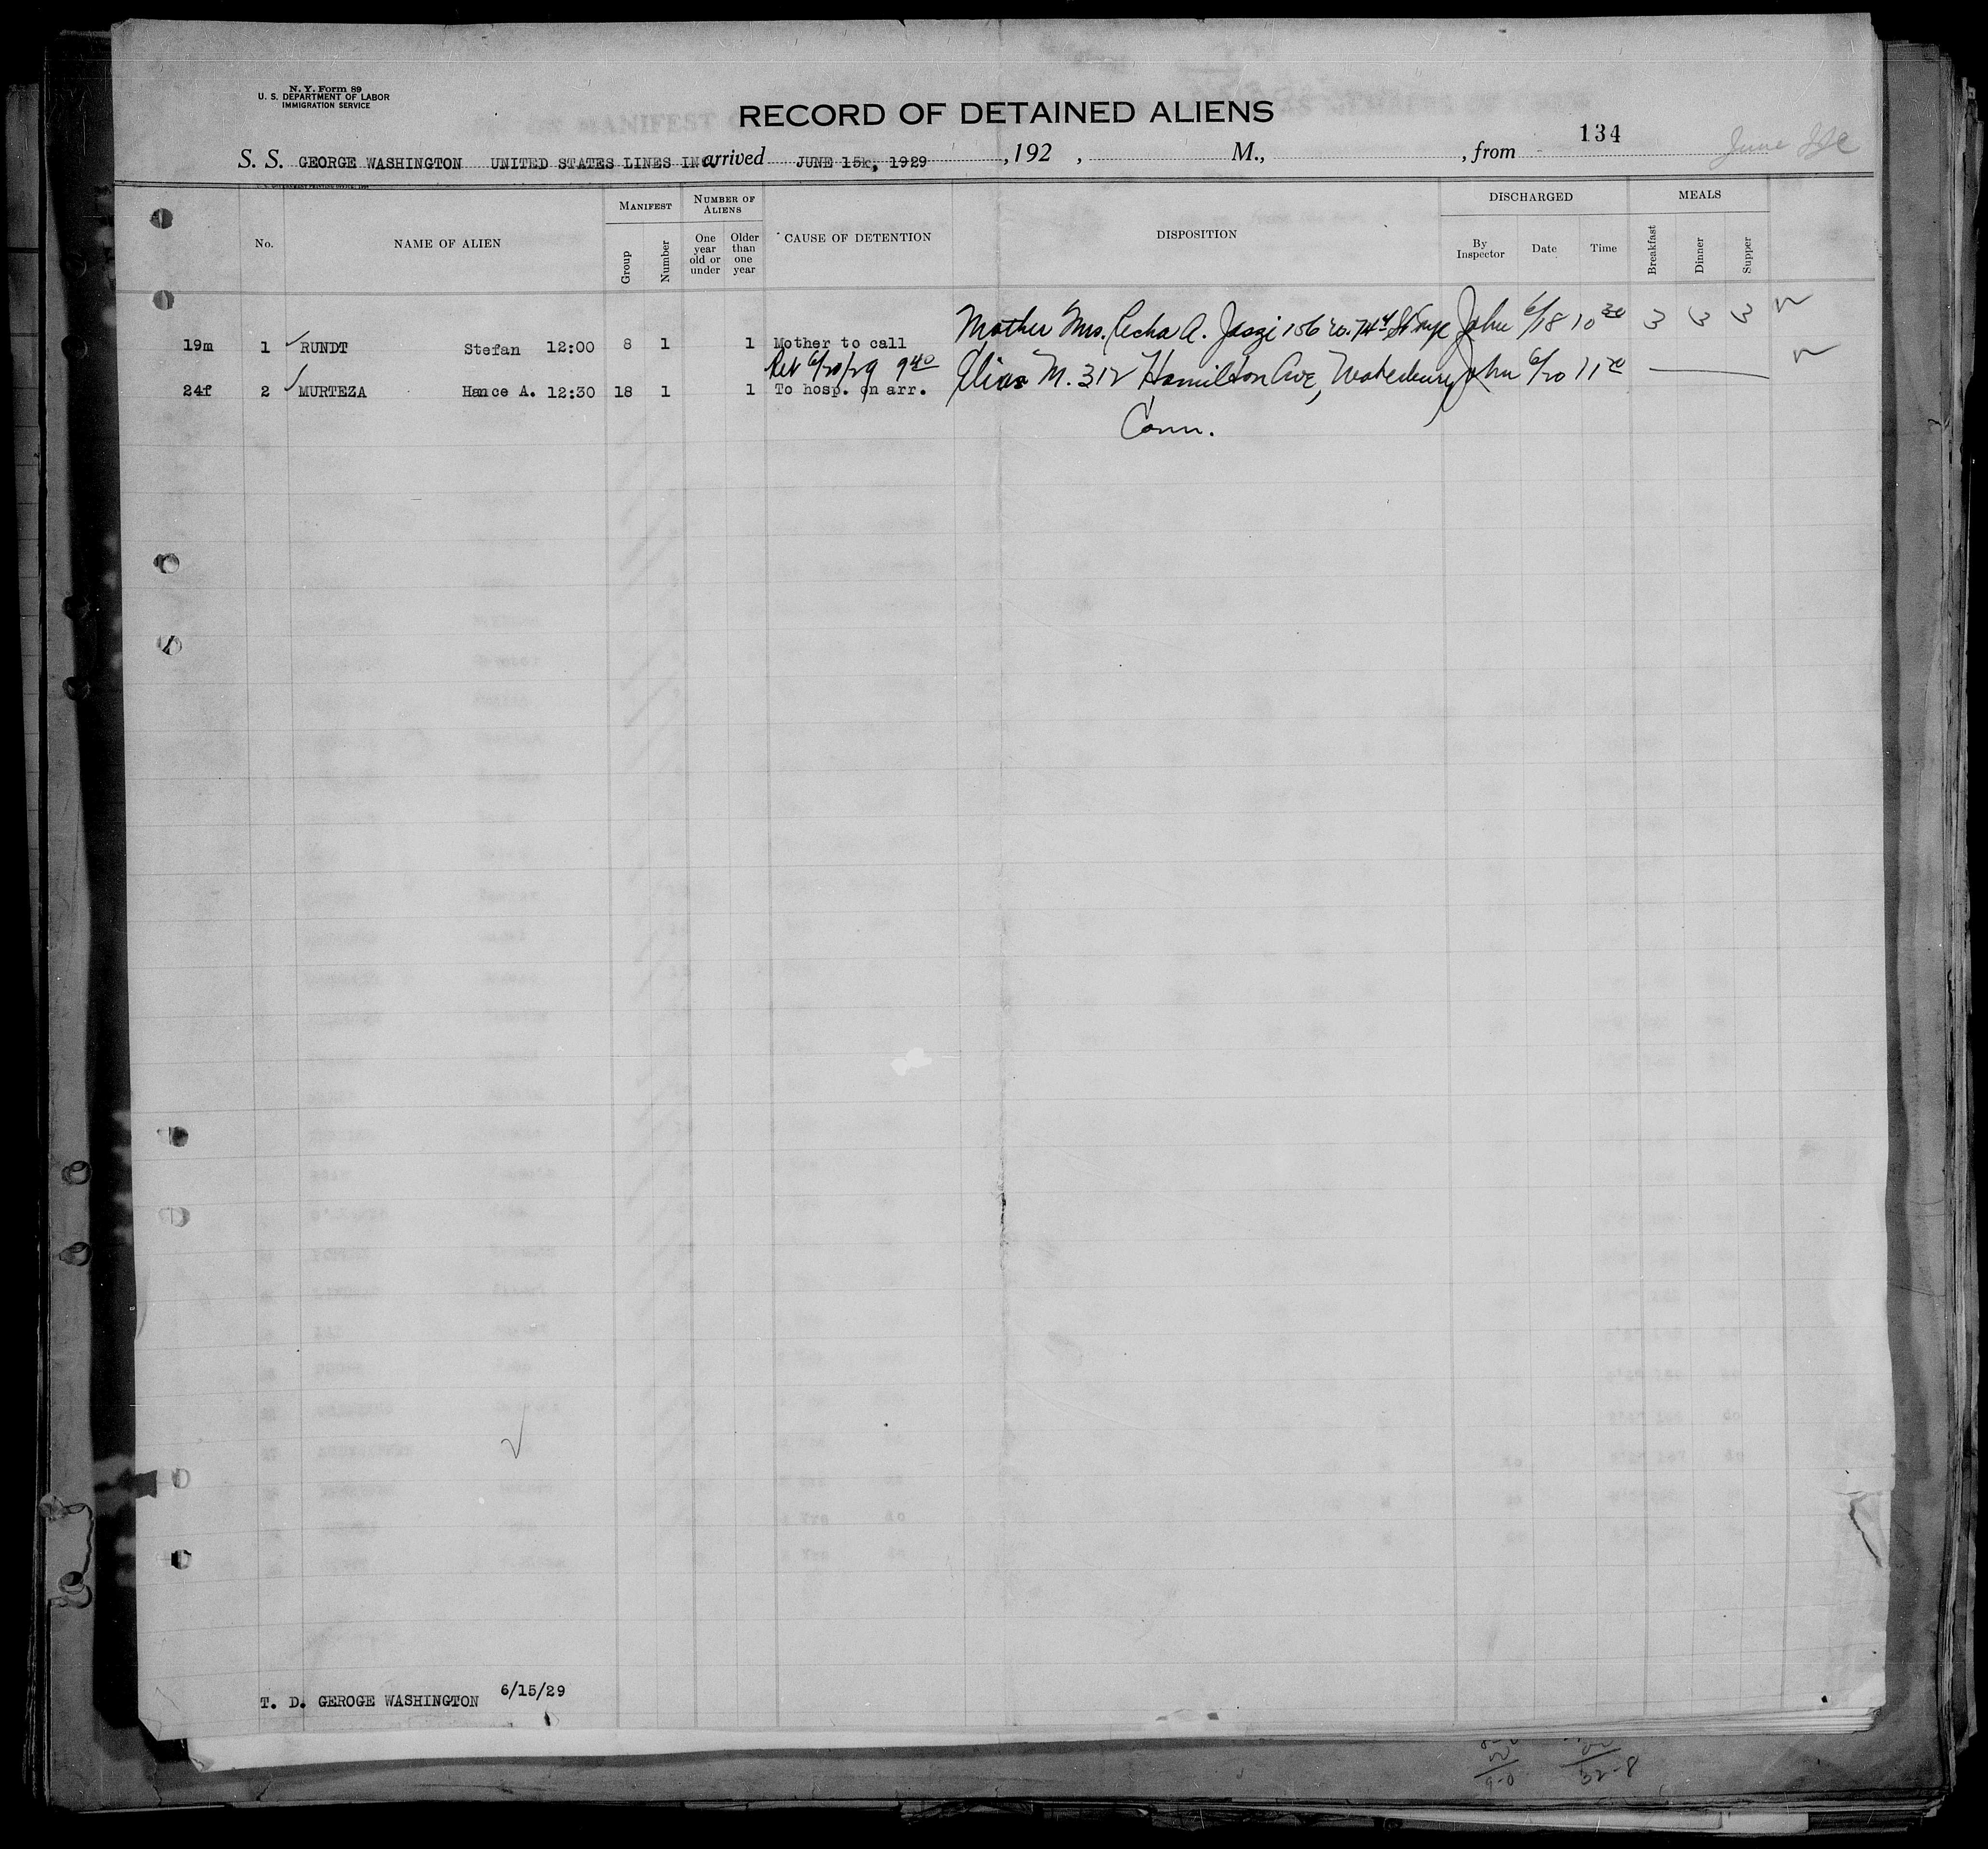 N. Y. Form 89
U. S. DEPARTMENT OF LABOR
IMMIGRATION SERVICE
RECORD OF DETAINED ALIENS
134
S. S. GEORGE WASHINGTON UNITED STATES LINES INC. arrived JUNE 15k, 1929 , 192 , M., , from
MANIFEST NUMBER OF ALIENS DISCHARGED MEALS
No. NAME OF ALIEN Group Number One year old or under Older than one year CAUSE OF DETENTION DISPOSITION By Inspector Date Time Breakfast Dinner Supper
19m 1 RUNDT Stefan 12:00 8 1 1 Mother to call Mother Mrs. A. Jaszi 156 W. 74th St. nyc John 6/18 10 30 3 3 3
Ret 6/20/29 9 40
24f 2 MURTEZA Hance A. 12:30 18 1 1 To hosp. on arr. Elias M. 312 Hamilton Ave, Waterbury John 6/20 11 20
Conn.
T. D. GEROGE WASHINGTON 6/15/29
9-0 32-8